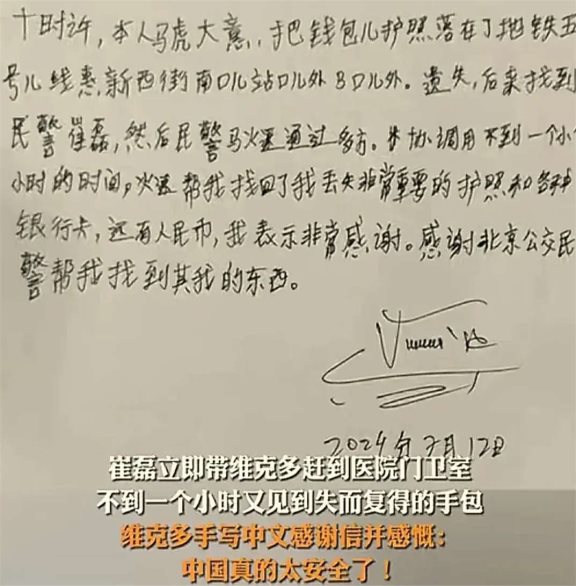 十时许，本人马虎大意，把钱包儿护照落在了地铁五
号儿线惠新西街南口儿站口儿外B口儿外。遗失，后来找到
民警崔磊，然后民警马火速通过多方。协调用不到一个小
小时的时间，火速帮我找回了我丢失非常重要的护照和各种
银行卡，还有人民币，我表示非常感谢。感谢北京公交民
警帮我找到其我的东西。
2024年7月12日
崔磊立即带维克多赶到医院门卫室
不到一个小时又见到失而复得的手包
维克多手写中文感谢信并感慨：
中国真的太安全了！